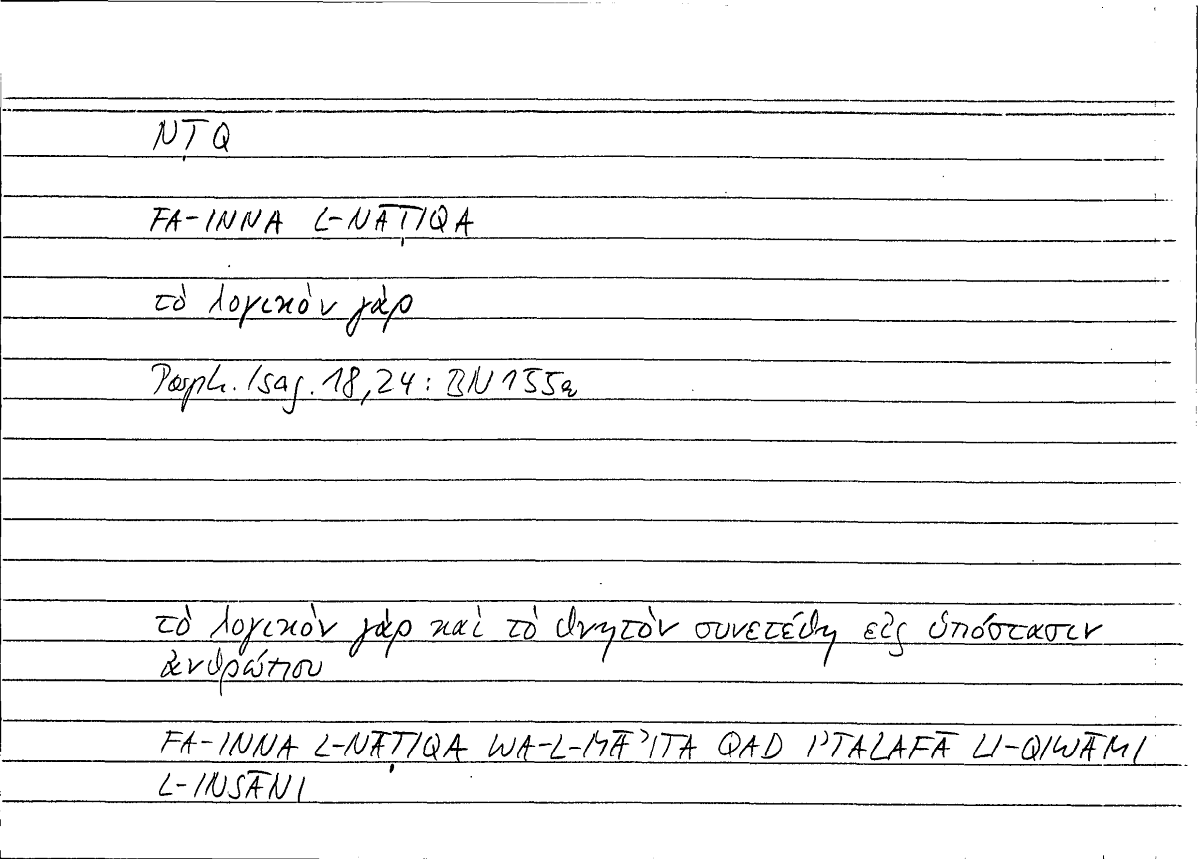 NṬQ
FA-INNA L-NĀṬIQA
τὸ λογικὸν γὰρ
Porph. Isag. 18,24: BN 155a
τὸ λογικὸν γὰρ καὶ τὸ θνητὸν συνετέθη εἰς ὑπόστασιν
ἀνθρώπου
FA-INNA L-NĀṬIQA WA-L-MĀʾITA QAD IʾTALAFĀ LI-QIWĀMI
L-INSĀNI